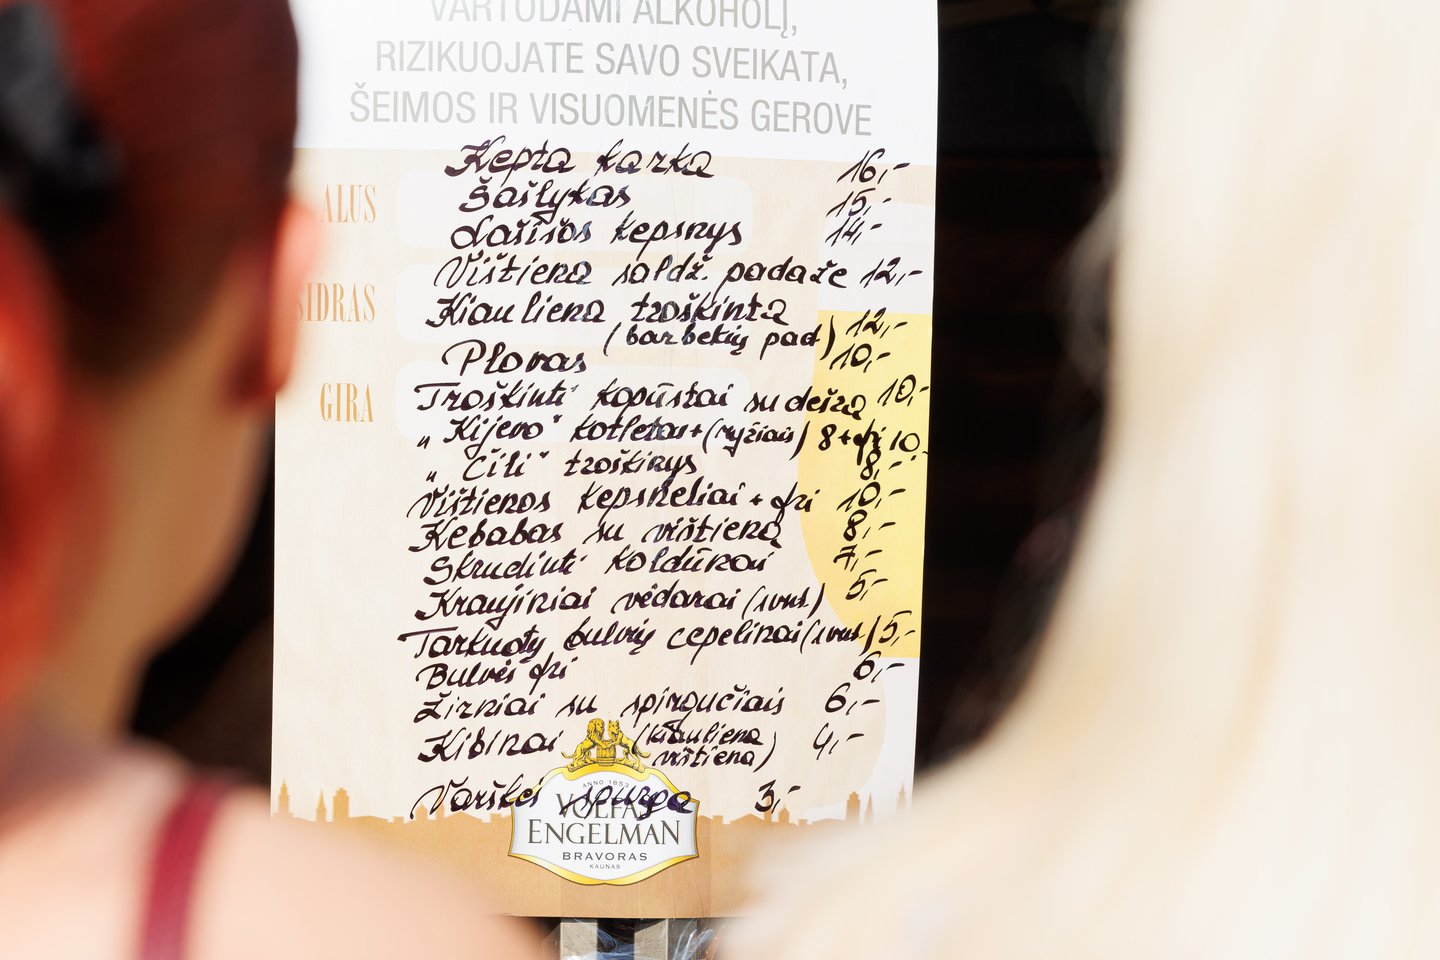 VARTODAMI ALKOHOLĮ,
RIZIKUOJATE SAVO SVEIKATA,
ŠEIMOS IR VISUOMENĖS GEROVE
ALUS
SIDRAS
GIRA
Kepta karka 16,-
Šašlykas 15,-
Lašišos kepsnys 14,-
Vištiena saldž. padaže 12,-
Kiauliena troškinta
(barbekių pad) 12,-
Plovas 10,-
Troškinti kopūstai su dešra 10,-
„Kijevo" kotletas+(ryžiais) 8+fri 10.
„Čili" troškinys 8,-
Vištienos kepsneliai + fri 10,-
Kebabas su vištiena 8,-
Skrudinti koldūnai 7,-
Kraujiniai vėdarai (1vnt.) 5,-
Tarkuotų bulvių cepelinai (1vnt) 5,-
Bulvės fri 6,-
Žirniai su spirgučiais 6,-
Kibinai (kiauliena
vištiena) 4,-
Varškės spurga 3,-
ANNO 1853
VOLFAS
ENGELMAN
BRAVORAS
KAUNAS